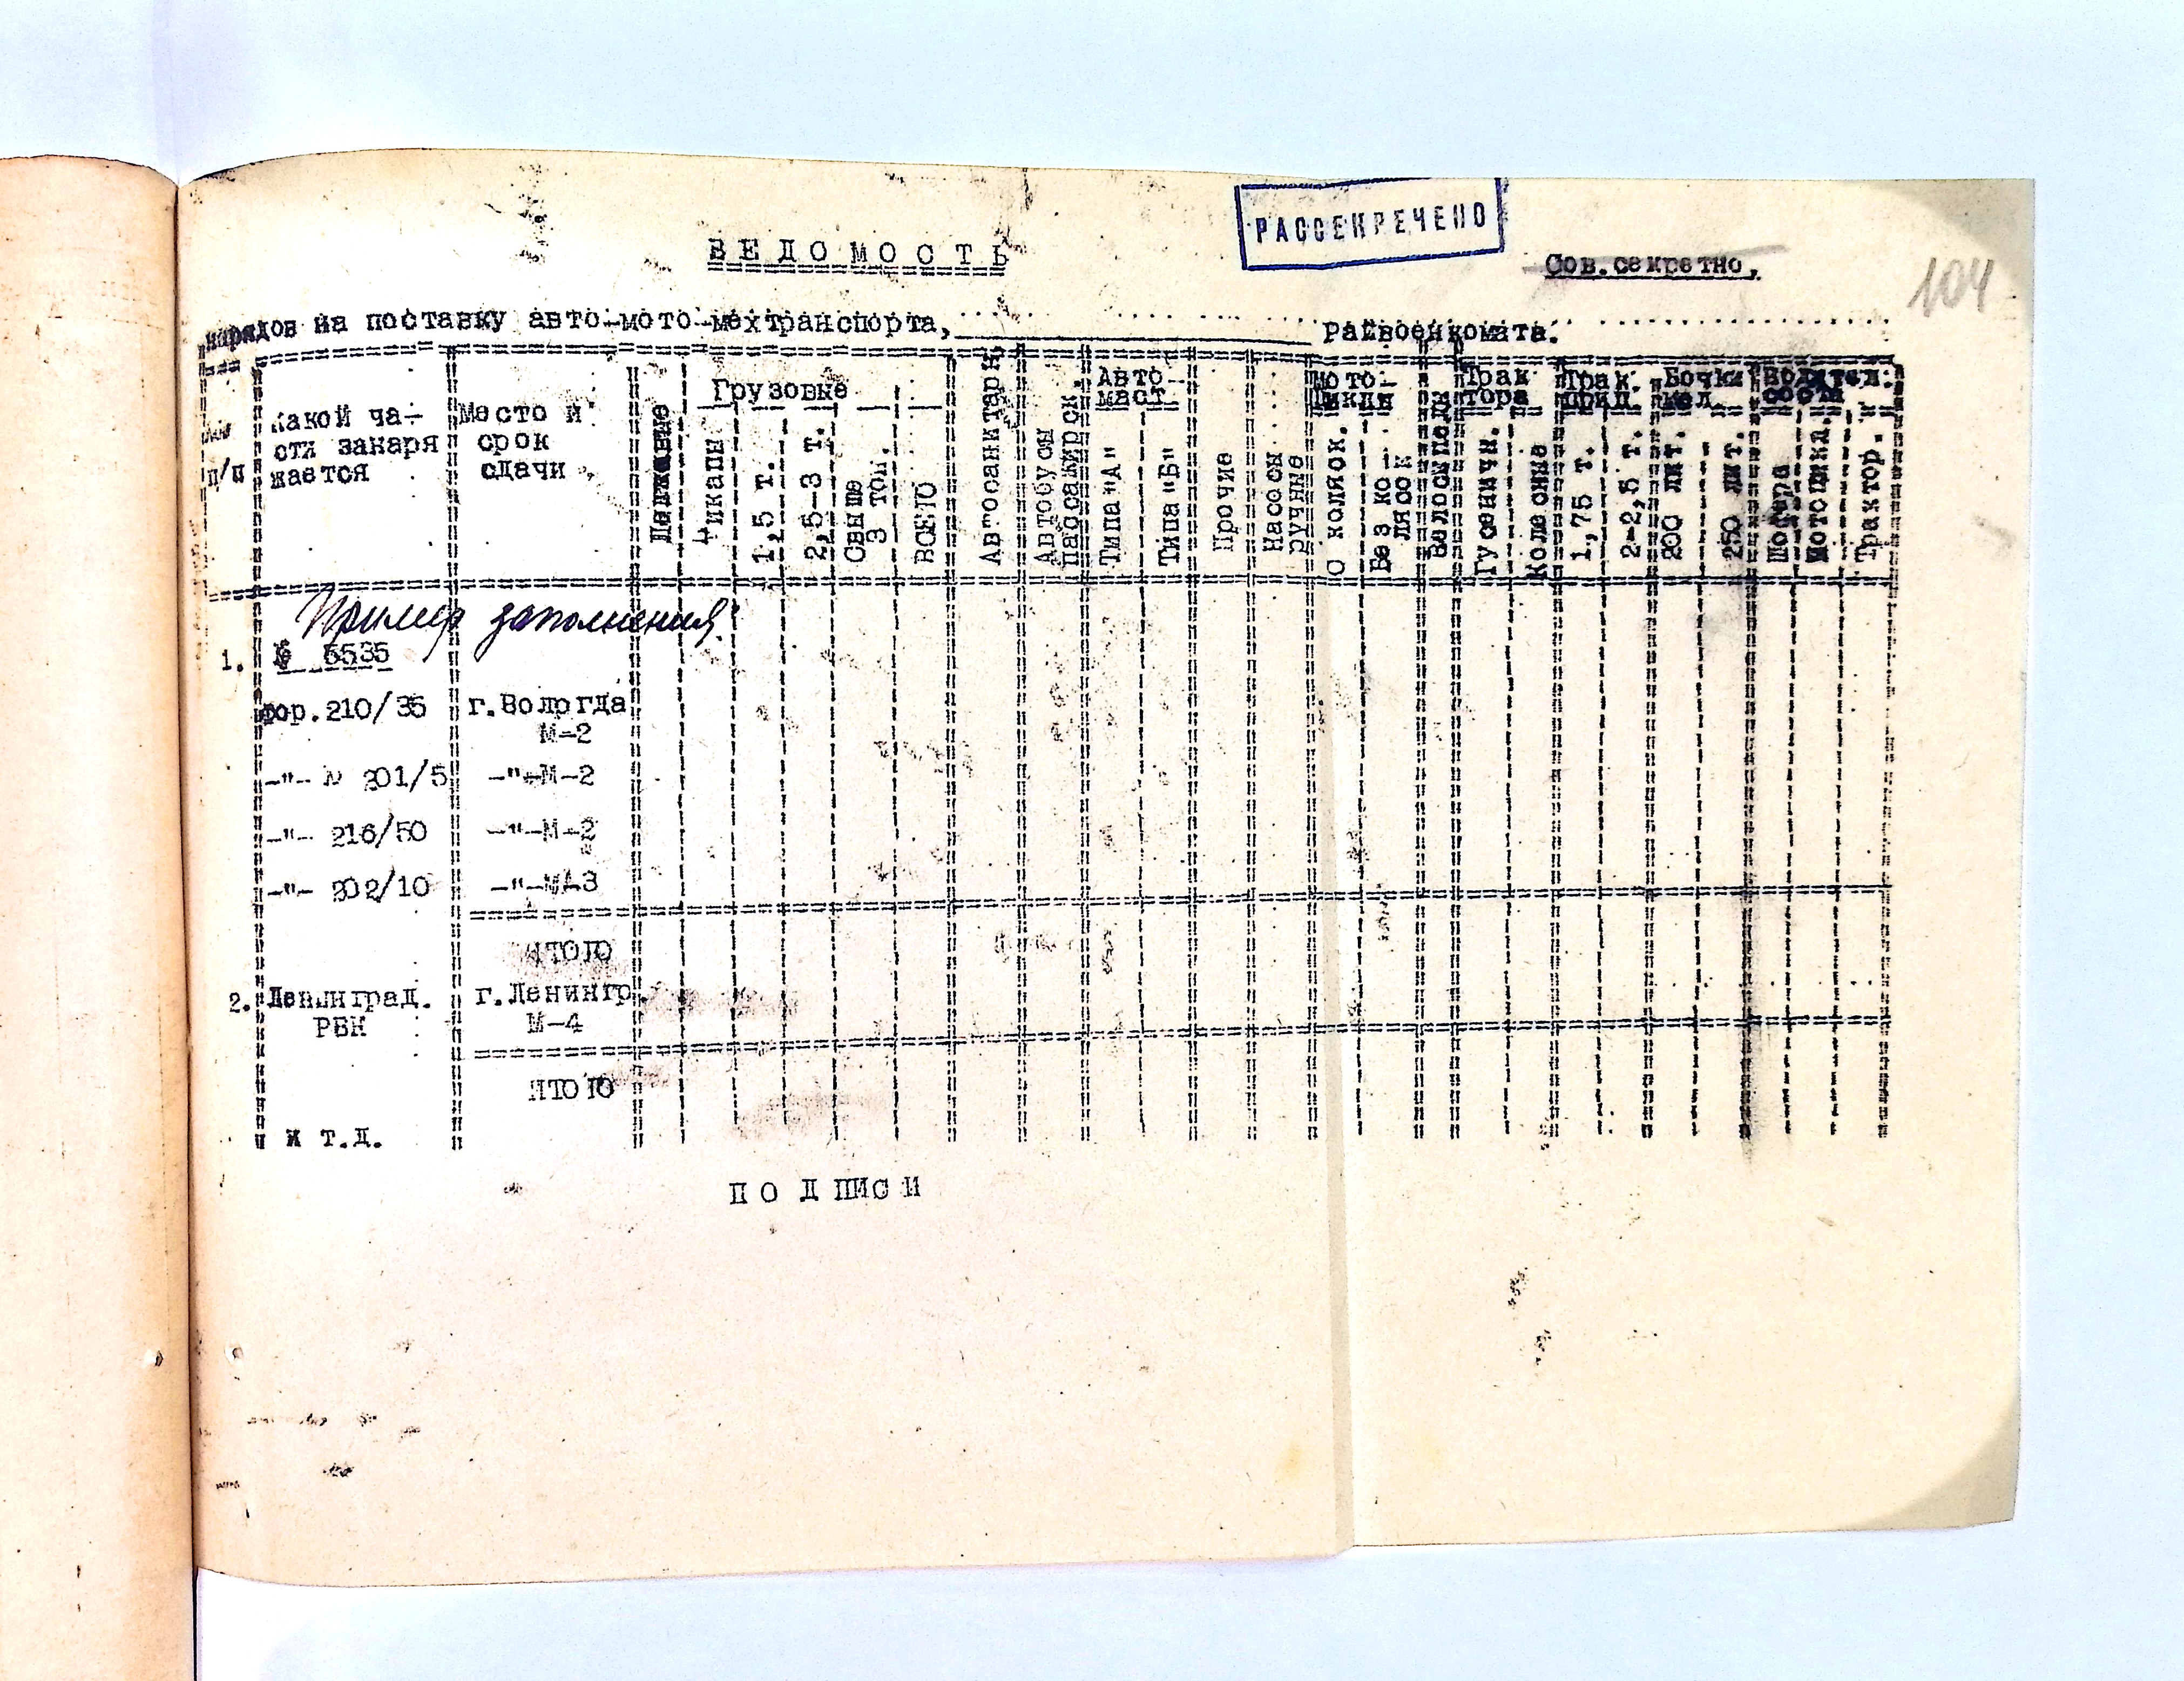 РАССЕКРЕЧЕНО
ВЕДОМОСТЬ
Сов.секретно,
104
нарядов на поставку авто-мото-мехтранспорта, Райвоенкомата.
п/п
Какой ча-
сти занаря
жается
Место и
срок
сдачи
Легковые
Грузовые
Пикапы
1,5 т.
2,5-3 т.
Свыше
3 тон.
ВСЕГО
Автосанитарн.
Автобусы
пассажирск.
Авто-
маст.
Типа "А"
Типа "Б"
Прочие
Насосы
ручные
Мото-
циклы
С коляск.
Без ко-
лясок
Велосипеды
Трак
тора
Гусеничн.
Колесные
Трак.
приц.
1,75 т.
2-2,5 т.
Бочки
жел.
200 лит.
250 лит.
Водител.
состав
Шофера
Мотоцикл.
Трактор.
Пример заполнения:
1. № 5535
фор.210/35 г.Вологда
М-2
-"- № 201/5 -"-М-2
-"- 216/50 -"-М-2
-"- 202/10 -"-М-3
ИТОГО
2. Ленинград. г.Ленингр.
РВК М-4
ИТОГО
и т.д.
ПОДПИСИ